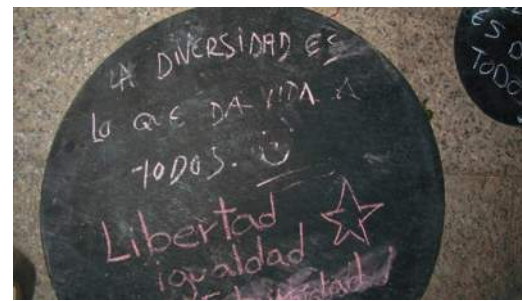 LA DIVERSIDAD ES
lo QUE DA VIDA A
TODOS.
Libertad
igualdad
ES D
TODO